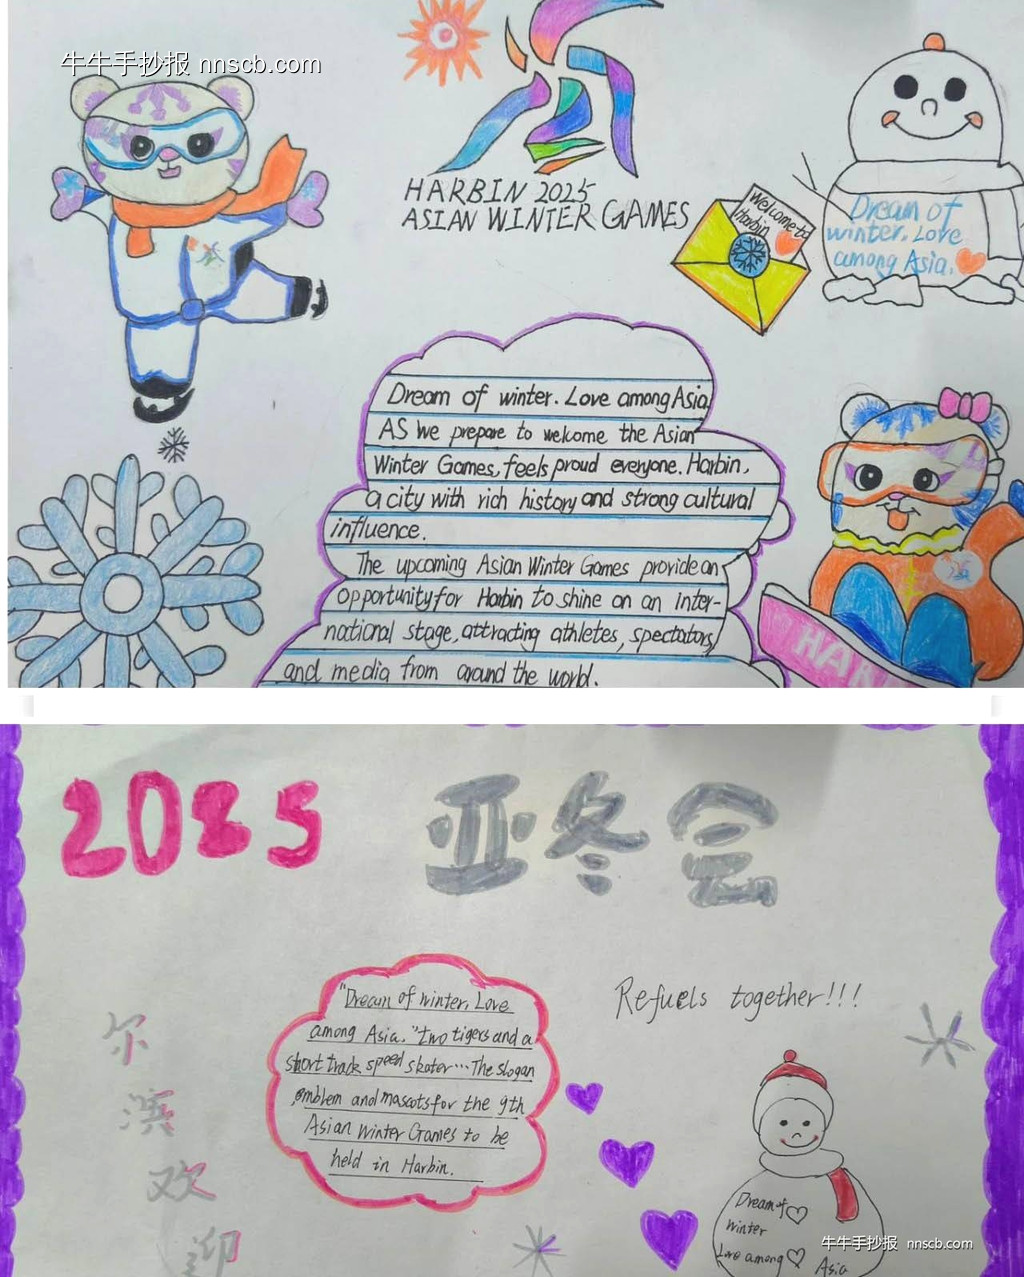 牛牛手抄报 nnscb.com
HARBIN 2025
ASIAN WINTER GAMES
Welcome to
Harbin
Dream of
winter. Love
among Asia.
Dream of winter. Love among Asia
AS we prepare to welcome the Asian
Winter Games, feels proud everyone. Harbin,
a city with rich history and strong cultural
influence.
The upcoming Asian Winter Games provide an
opportunity for Harbin to shine on an inter-
national stage, attracting athletes, spectators,
and media from around the world.
HAR
2025 亚冬会
"Dream of winter. Love
among Asia." Two tigers and a
short track speed skater... The slogan
,emblem and mascots for the 9th
Asian Winter Games to be
held in Harbin.
Refuels together!!!
尔
滨
欢
迎
Dream of
winter
Love among
Asia
牛牛手抄报 nnscb.com